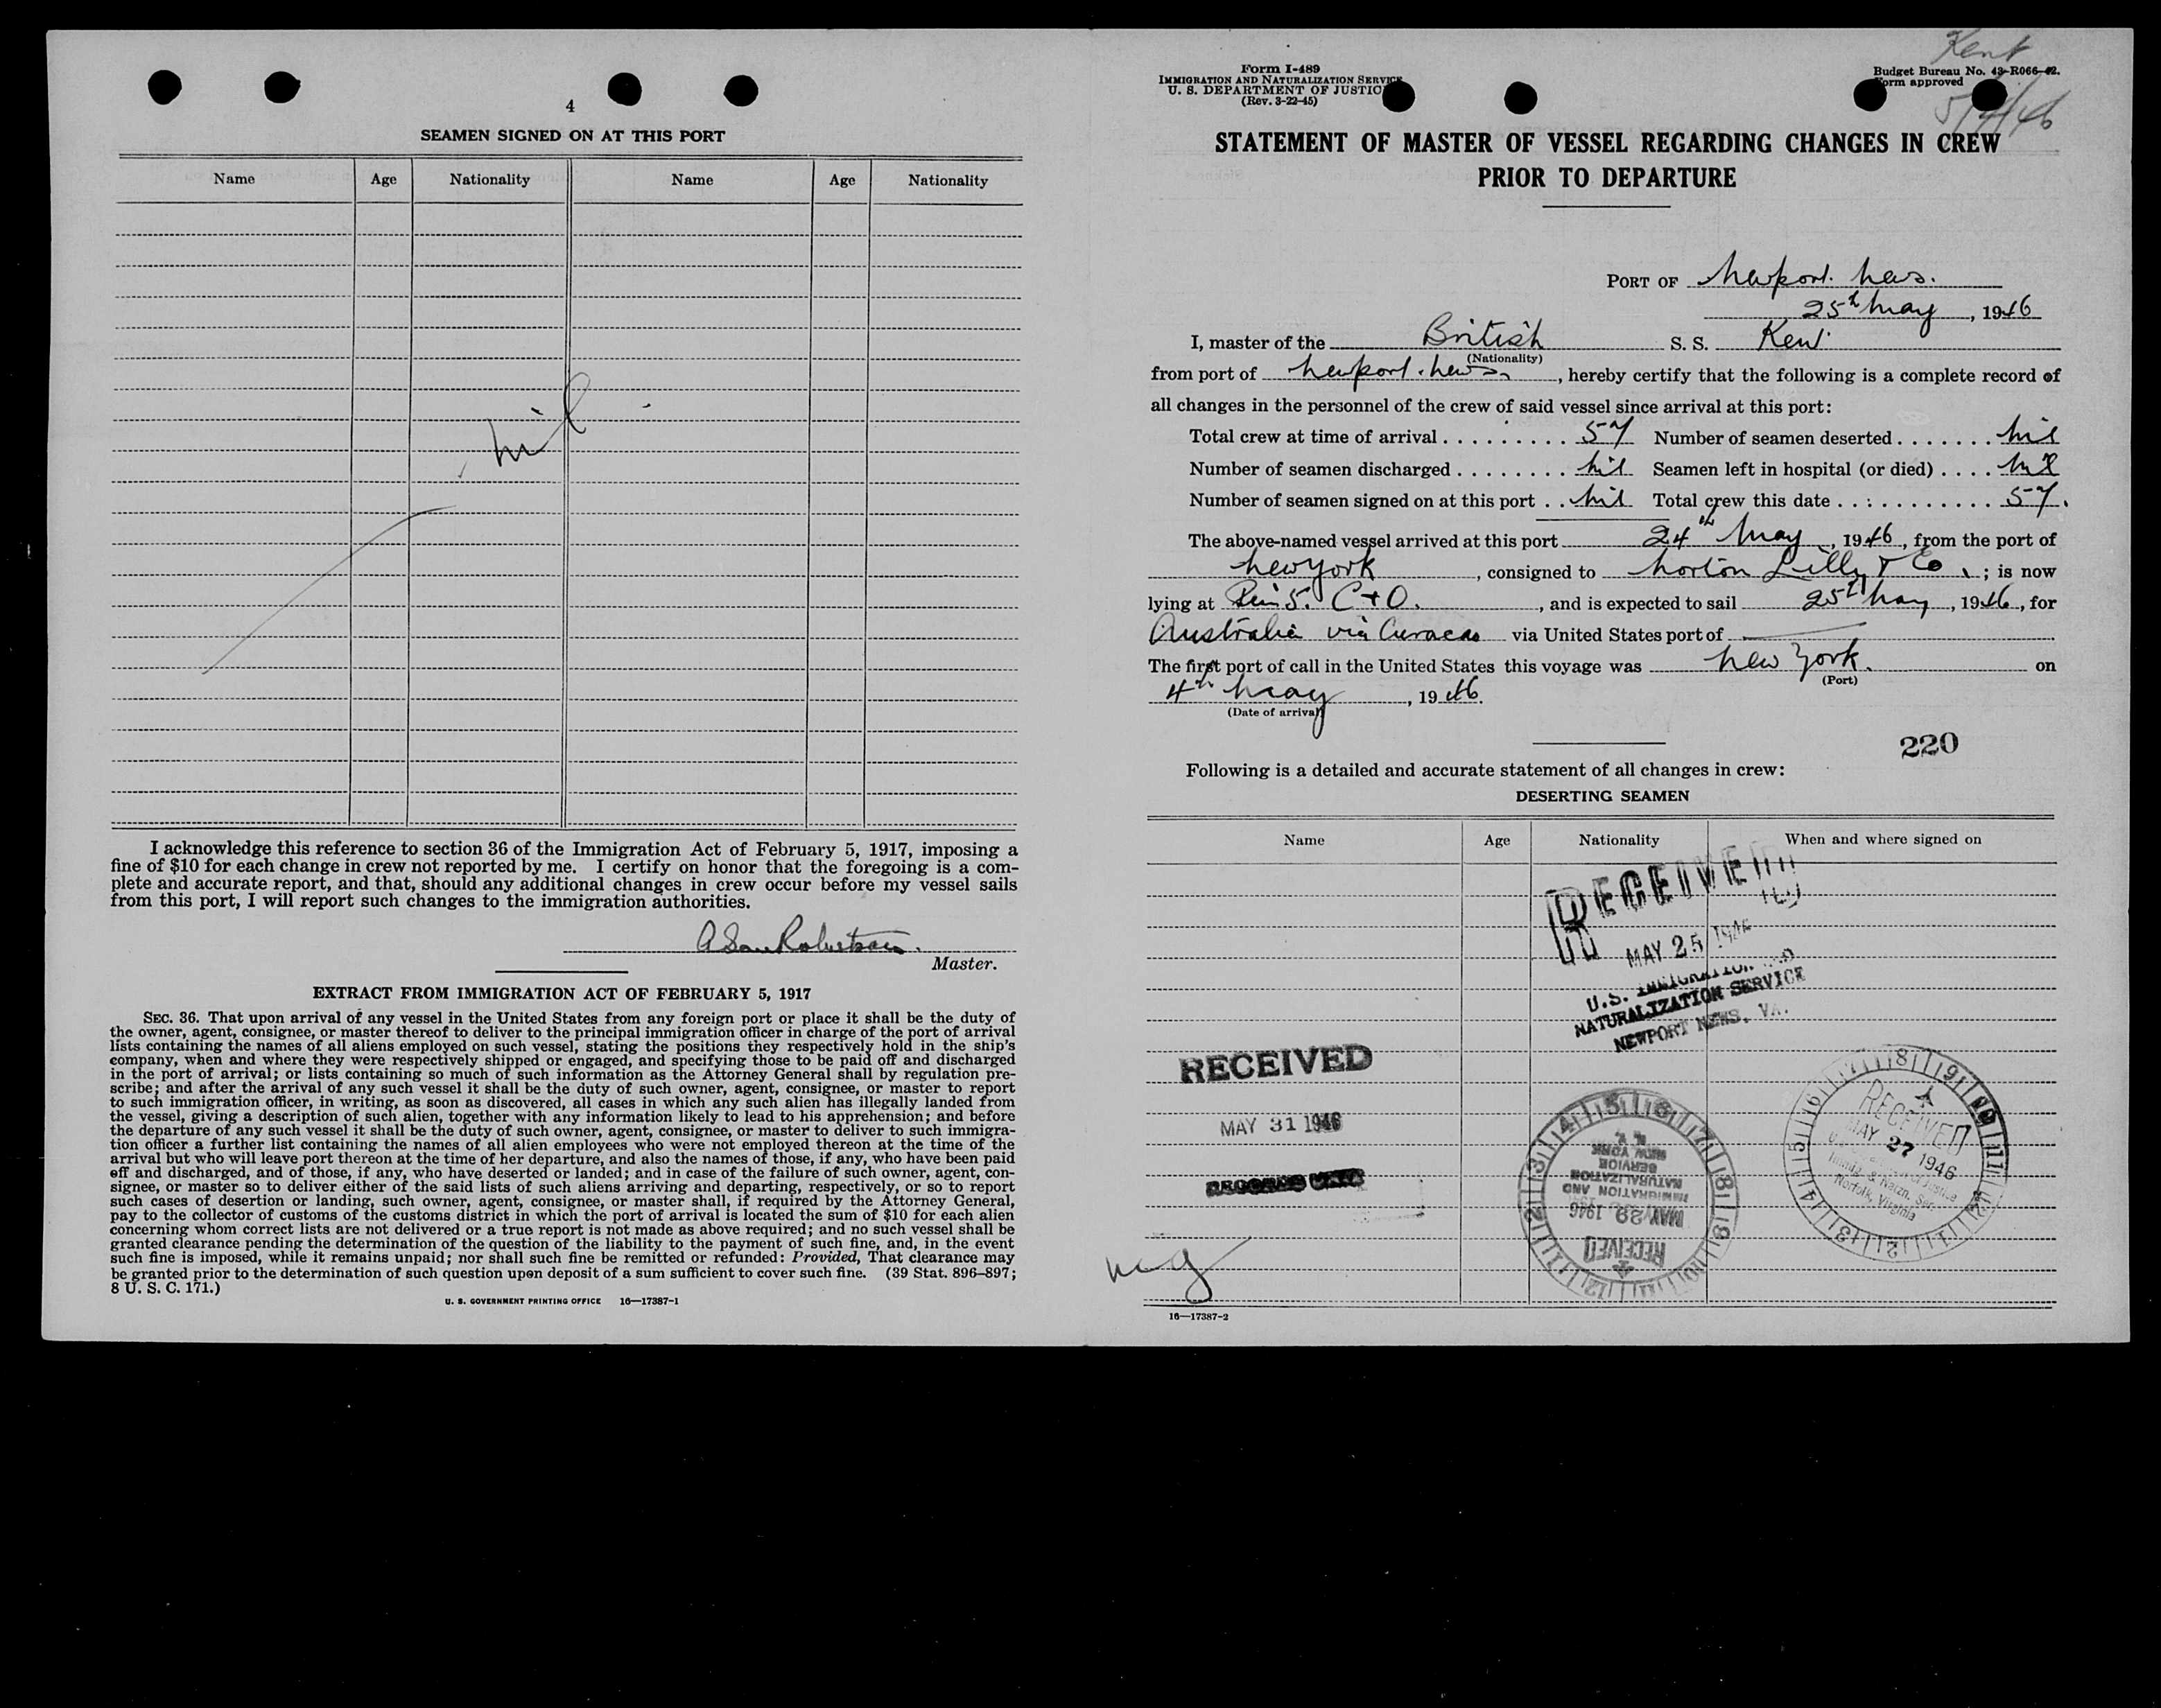 4
SEAMEN SIGNED ON AT THIS PORT
Name Age Nationality Name Age Nationality
nil
I acknowledge this reference to section 36 of the Immigration Act of February 5, 1917, imposing a
fine of $10 for each change in crew not reported by me. I certify on honor that the foregoing is a com-
plete and accurate report, and that, should any additional changes in crew occur before my vessel sails
from this port, I will report such changes to the immigration authorities.
Robertson.
Master.
EXTRACT FROM IMMIGRATION ACT OF FEBRUARY 5, 1917
SEC. 36. That upon arrival of any vessel in the United States from any foreign port or place it shall be the duty of
the owner, agent, consignee, or master thereof to deliver to the principal immigration officer in charge of the port of arrival
lists containing the names of all aliens employed on such vessel, stating the positions they respectively hold in the ship's
company, when and where they were respectively shipped or engaged, and specifying those to be paid off and discharged
in the port of arrival; or lists containing so much of such information as the Attorney General shall by regulation pre-
scribe; and after the arrival of any such vessel it shall be the duty of such owner, agent, consignee, or master to report
to such immigration officer, in writing, as soon as discovered, all cases in which any such alien has illegally landed from
the vessel, giving a description of such alien, together with any information likely to lead to his apprehension; and before
the departure of any such vessel it shall be the duty of such owner, agent, consignee, or master to deliver to such immigra-
tion officer a further list containing the names of all alien employees who were not employed thereon at the time of the
arrival but who will leave port thereon at the time of her departure, and also the names of those, if any, who have been paid
off and discharged, and of those, if any, who have deserted or landed; and in case of the failure of such owner, agent, con-
signee, or master so to deliver either of the said lists of such aliens arriving and departing, respectively, or so to report
such cases of desertion or landing, such owner, agent, consignee, or master shall, if required by the Attorney General,
pay to the collector of customs of the customs district in which the port of arrival is located the sum of $10 for each alien
concerning whom correct lists are not delivered or a true report is not made as above required; and no such vessel shall be
granted clearance pending the determination of the question of the liability to the payment of such fine, and, in the event
such fine is imposed, while it remains unpaid; nor shall such fine be remitted or refunded: Provided, That clearance may
be granted prior to the determination of such question upon deposit of a sum sufficient to cover such fine. (39 Stat. 896-897;
8 U. S. C. 171.)
U. S. GOVERNMENT PRINTING OFFICE 16—17387-1
Kent
5/4/46
Form I-489
IMMIGRATION AND NATURALIZATION SERVICE
U. S. DEPARTMENT OF JUSTICE
(Rev. 3-22-45)
Budget Bureau No. 43-R066-42.
Form approved
STATEMENT OF MASTER OF VESSEL REGARDING CHANGES IN CREW
PRIOR TO DEPARTURE
PORT OF Newport. News.
25th May, 1946
I, master of the British S. S. Kent
(Nationality)
from port of Newport. News, hereby certify that the following is a complete record of
all changes in the personnel of the crew of said vessel since arrival at this port:
Total crew at time of arrival . . . . . . . . . 57 Number of seamen deserted . . . . . . . nil
Number of seamen discharged . . . . . . . . nil Seamen left in hospital (or died) . . . . nil
Number of seamen signed on at this port . . nil Total crew this date . . . . . . . . . . . . 57.
The above-named vessel arrived at this port 24th May, 1946, from the port of
New York, consigned to Norton Lilly & Co.; is now
lying at Pier 5. C + O., and is expected to sail 25th May, 1946, for
Australia via Curacao via United States port of
The first port of call in the United States this voyage was New York. on
(Port)
4th May, 1946.
(Date of arrival)
220
Following is a detailed and accurate statement of all changes in crew:
DESERTING SEAMEN
Name Age Nationality When and where signed on
RECEIVED
MAY 25 1946
U.S. IMMIGRATION AND
NATURALIZATION SERVICE
NEWPORT NEWS, VA.
RECEIVED
MAY 31 1946
RECEIVED
MAY 29 1946
IMMIGRATION AND
NATURALIZATION
SERVICE
NEW YORK
N. Y.
RECEIVED
MAY 27 1946
Immig. & Natzn. Ser.
Norfolk, Virginia
16—17387-2